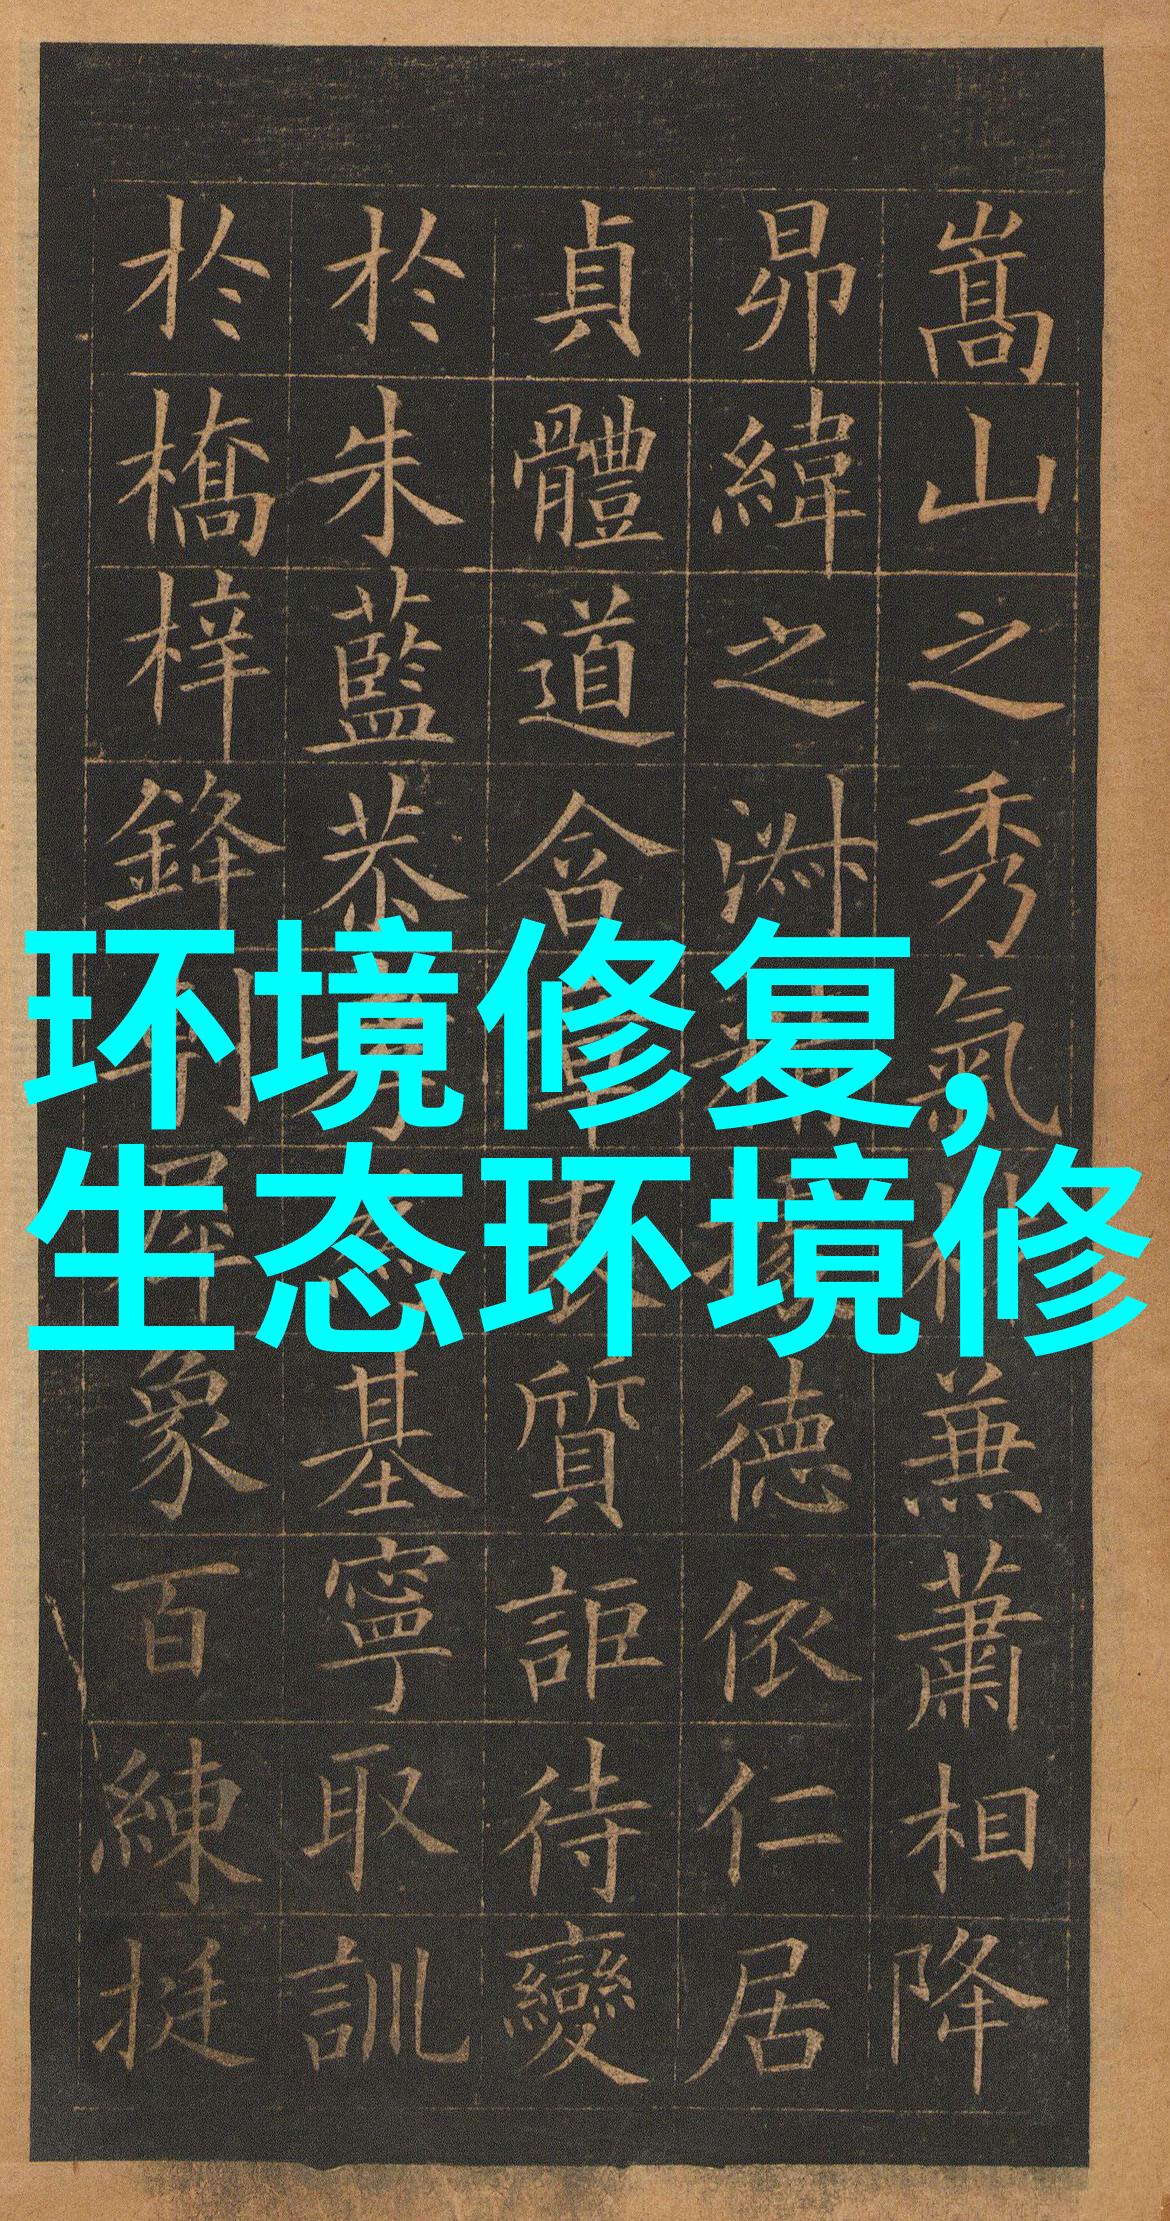 环境修复,
生态环境修
嵩山之秀氣兼蕭相降
昴緯之淑德依仁居
貞體道含章質詎待變
於朱藍恭基寧取訓
於橋梓鋒象百練挺